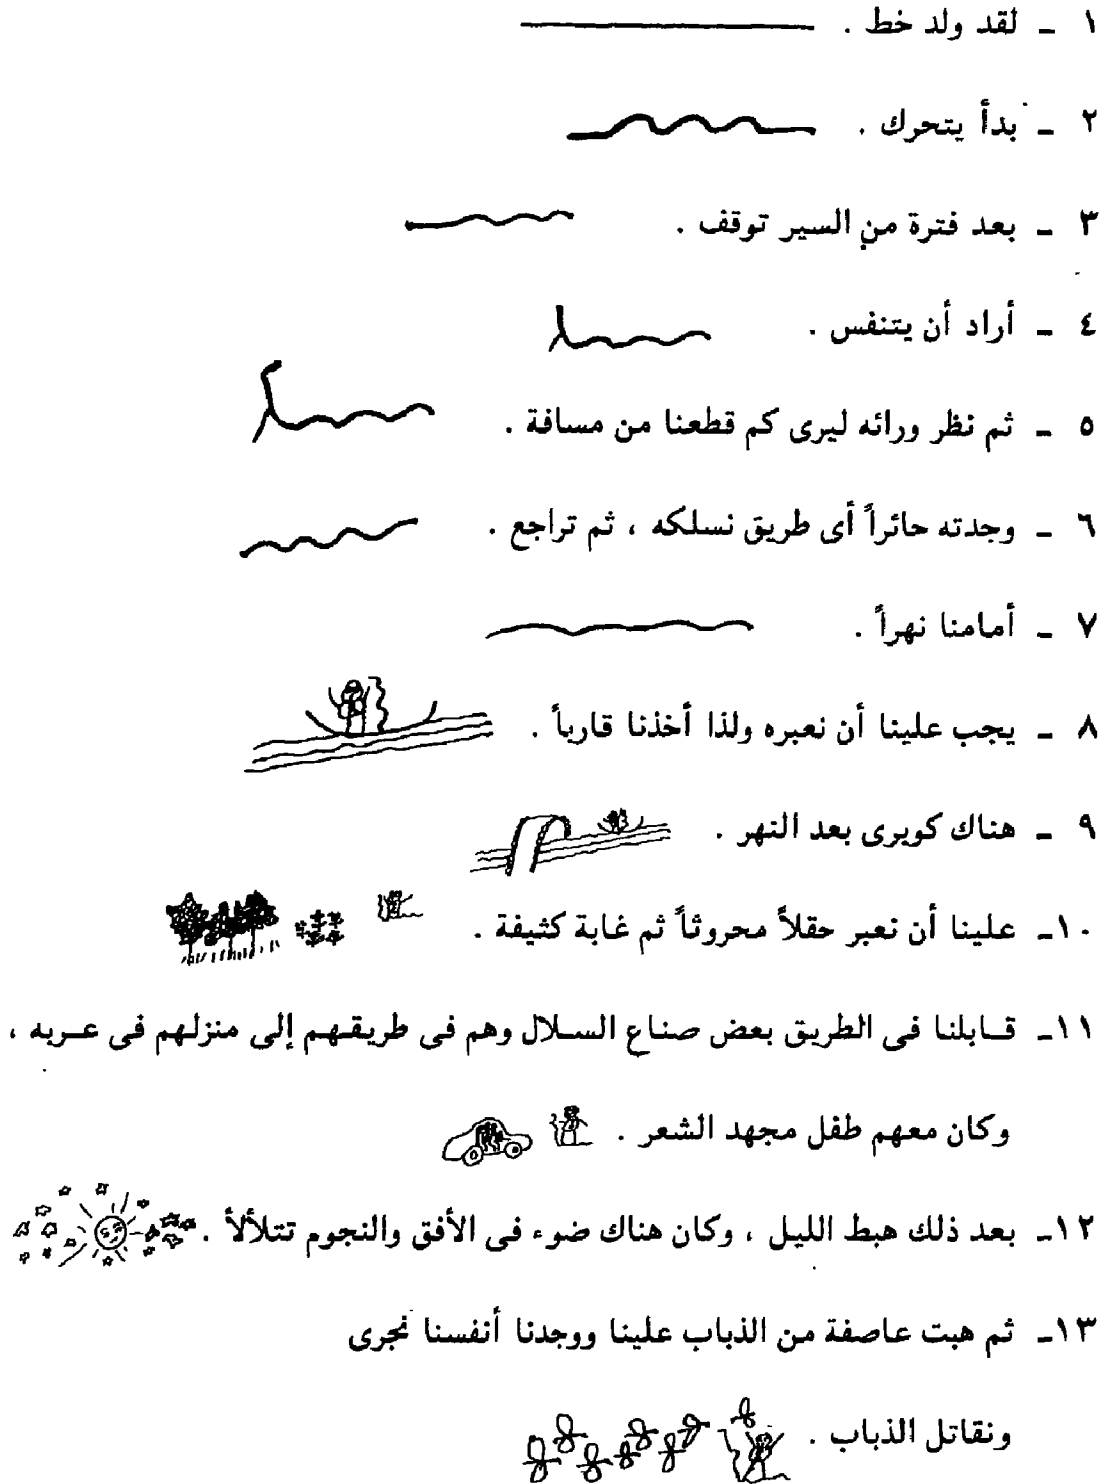 ١ ـ لقد ولد خط .
٢ ـ بدأ يتحرك .
٣ ـ بعد فترة من السير توقف .
٤ ـ أراد أن يتنفس .
٥ ـ ثم نظر ورائه ليرى كم قطعنا من مسافة .
٦ ـ وجدته حائراً أى طريق نسلكه ، ثم تراجع .
٧ ـ أمامنا نهراً .
٨ ـ يجب علينا أن نعبره ولذا أخذنا قارباً .
٩ ـ هناك كوبرى بعد النهر .
١٠ـ علينا أن نعبر حقلاً محروثاً ثم غابة كثيفة .
١١ـ قـابلنا فى الطريق بعض صناع السـلال وهم فى طريقـهم إلى منزلهم فى عـربه ،
وكان معهم طفل مجهد الشعر .
١٢ـ بعد ذلك هبط الليل ، وكان هناك ضوء فى الأفق والنجوم تتلألأ .
١٣ـ ثم هبت عاصفة من الذباب علينا ووجدنا أنفسنا نجرى
ونقاتل الذباب .